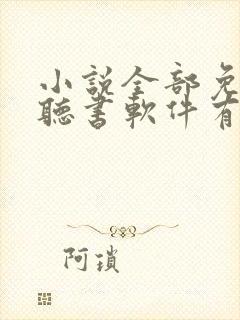 小說全部免
聽書軟件有
阿瑣